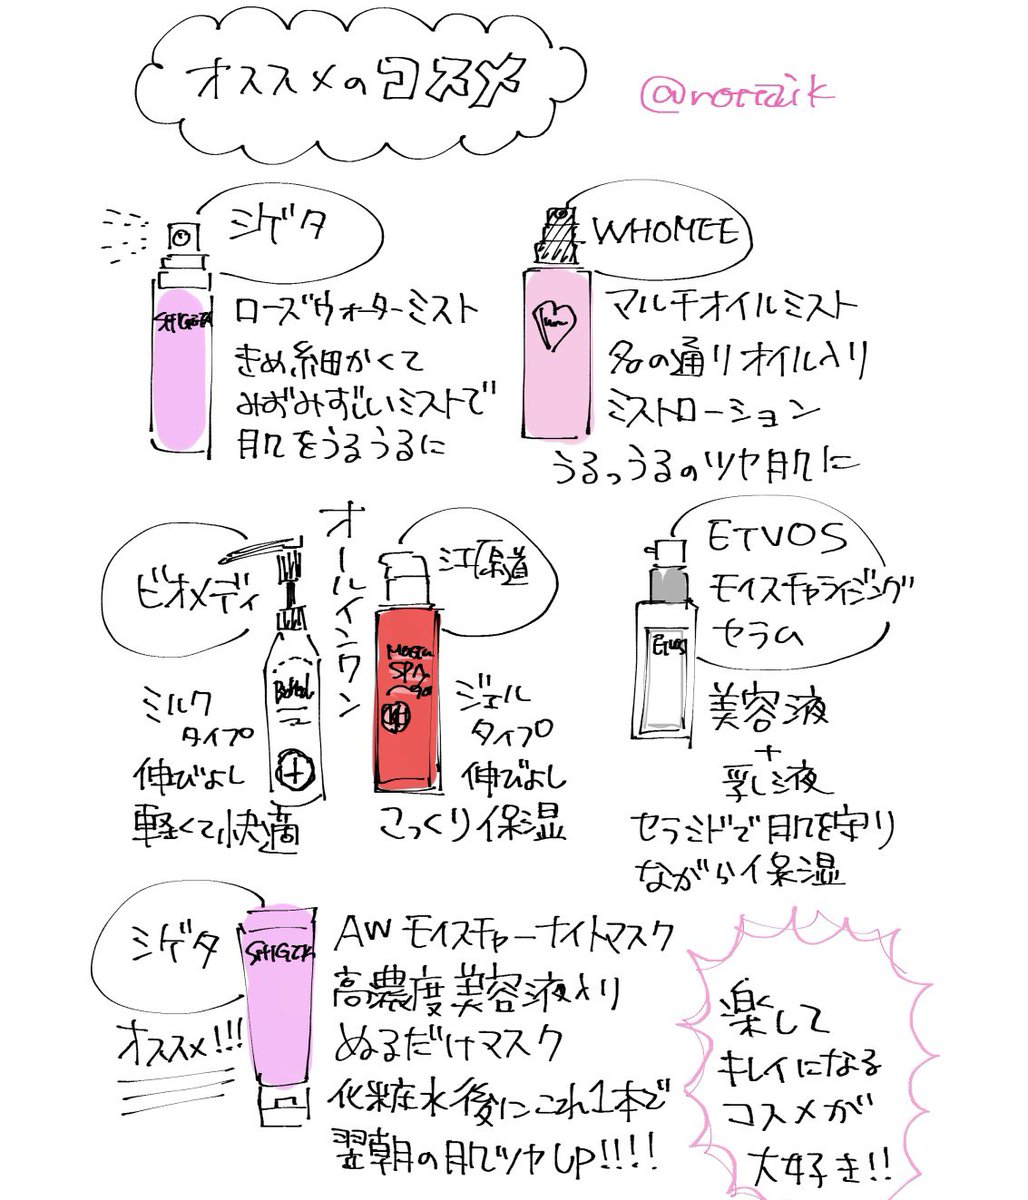 オススメのコスメ
シゲタ
SHIGETA
ローズウォーターミスト
きめ細かくて
みずみずしいミストで
肌をうるうるに
WHOMEE
マルチオイルミスト
名の通りオイル入り
ミストローション
うるっうるのツヤ肌に
オールインワン
ビオメディ
ミルク
タイプ
伸びよし
軽くて快適
江原道
SPA
ジェル
タイプ
伸びよし
こっくり保湿
ETVOS
モイスチャライジング
セラム
ETVOS
美容液
+
乳液
セラミドで肌を守り
ながら保湿
シゲタ
オススメ!!!
SHIGETA
AWモイスチャーナイトマスク
高濃度美容液入り
ぬるだけマスク
化粧水後にこれ1本で
翌朝の肌ツヤUP!!!!
楽して
キレイになる
コスメが
大好き!!